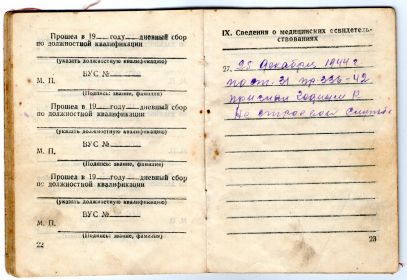 Прошел в 19 году дневный сбор
по должностной квалификации
(указать должностную квалификацию)
ВУС №
М. П.
(Подпись: звание, фамилия)
Прошел в 19 году дневный сбор
по должностной квалификации
(указать должностную квалификацию)
ВУС №
М. П.
(Подпись: звание, фамилия)
Прошел в 19 году дневный сбор
по должностной квалификации
(указать должностную квалификацию)
ВУС №
М. П.
(Подпись: звание, фамилия)
22
IX. Сведения о медицинских освидетель-
ствованиях
27. Декабря 1944 г
по ст. 31 пр. 336-42
признан годным к
строевой службе
23